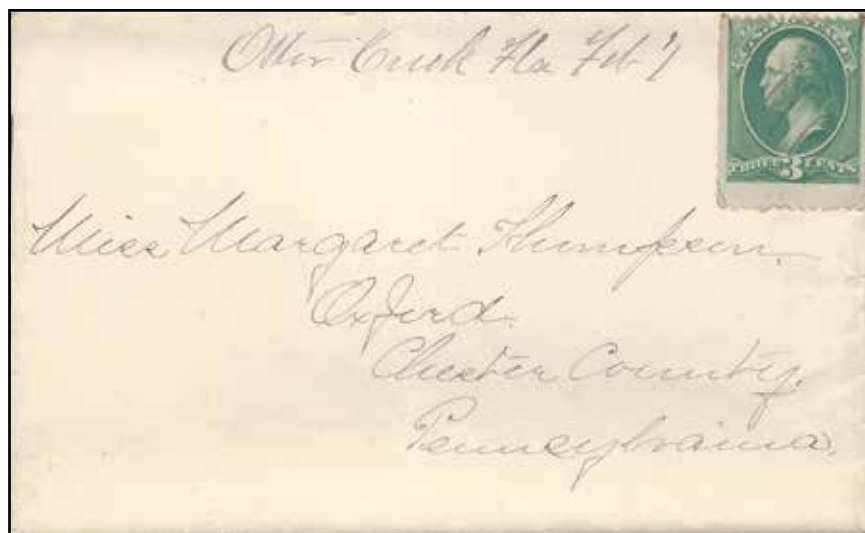 Otter Creek Fla Feb 7
U.S. POSTAGE
THREE 3 CENTS
Miss Margaret Thompson.
Oxford.
Chester County.
Pennsylvania.